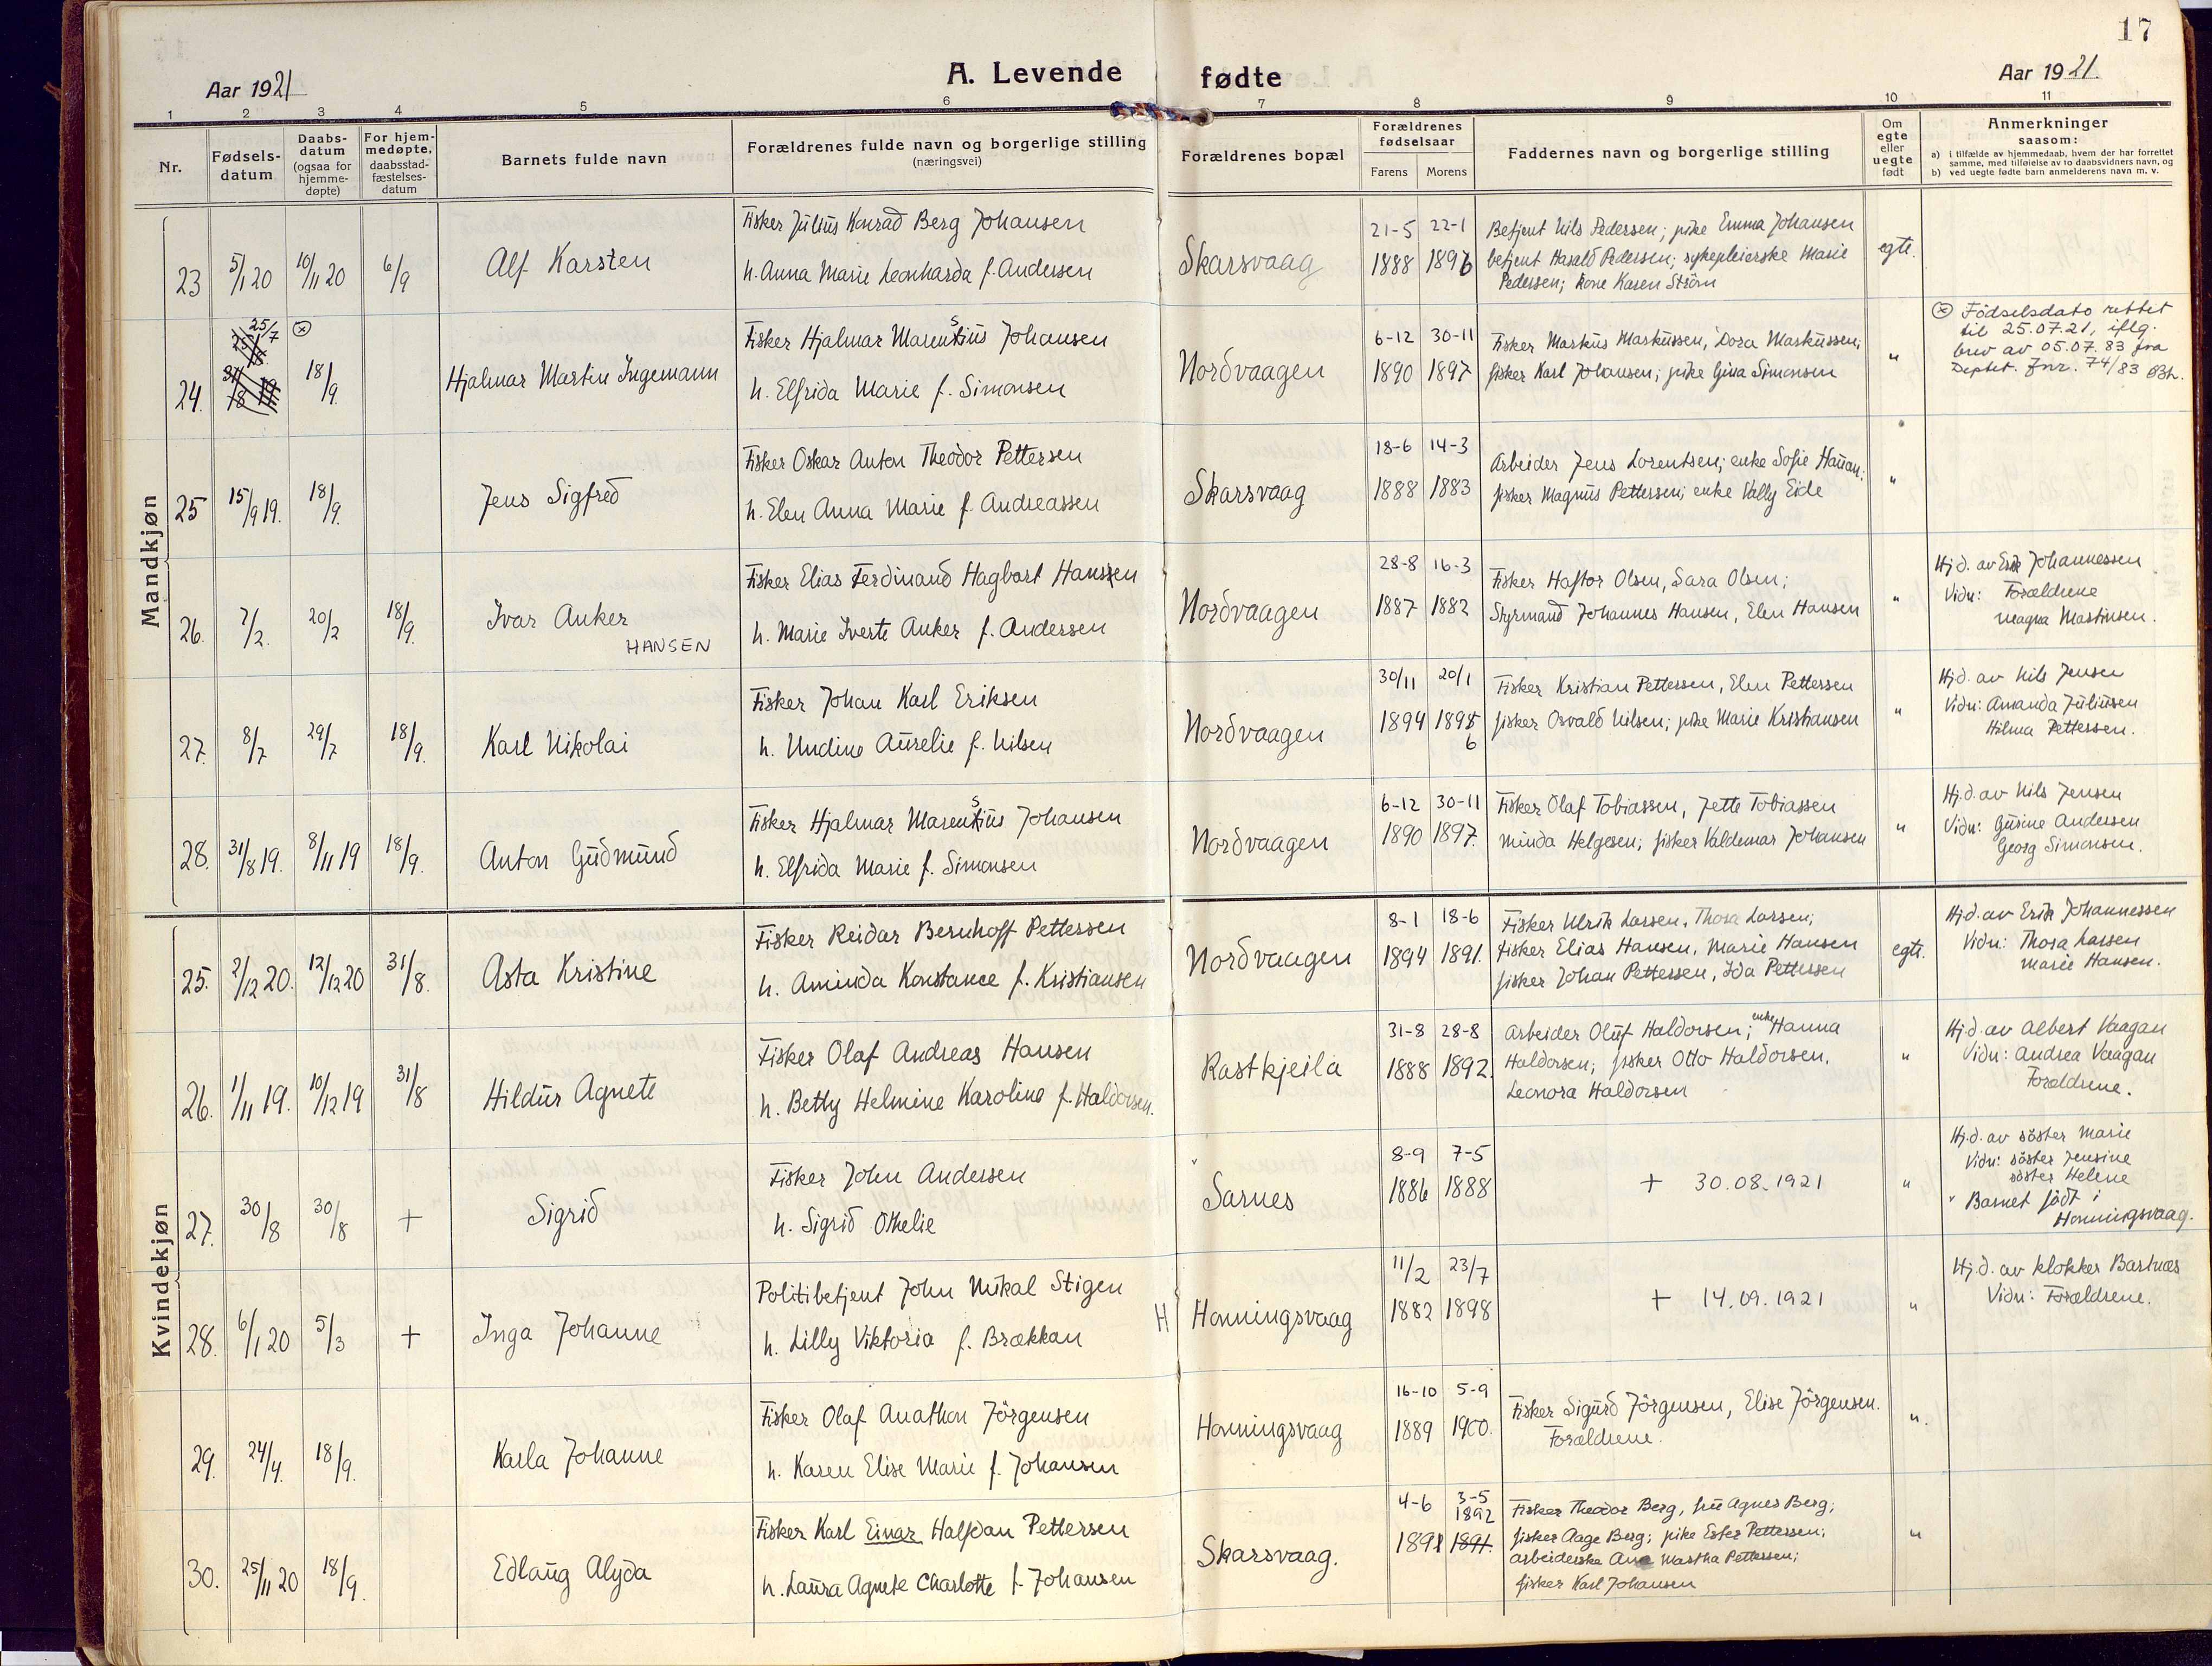 17
Aar 1921
A. Levende fødte
Aar 1921.
1 2 3 4 5 6 7 8 9 10 11
Nr.
Fødsels-
datum
Daabs-
datum
(ogsaa for
hjemme-
døpte)
For hjem-
medøpte,
daabsstad-
fæstelses-
datum
Barnets fulde navn
Forældrenes fulde navn og borgerlige stilling
(næringsvei)
Forældrenes bopæl
Forældrenes
fødselsaar
Farens Morens
Faddernes navn og borgerlige stilling
Om
egte
eller
uegte
født
Anmerkninger
saasom:
a) i tilfælde av hjemmedaab, hvem der har forrettet
samme, med tilføielse av to daabsvidners navn, og
b) ved uegte fødte barn anmelderens navn m. v.
Mandkjøn
23 5/1 20 10/11 20 6/9 Alf Karsten
Fisker Julius Konrad Berg Johansen
h. Anna Marie Leonharda f. Andersen
Skarsvaag
21-5 22-1
1888 1896
Betjent Nils Pedersen; pike Emma Johansen
betjent Harald Pedersen; sykepleierske Marie
Pedersen; kone Karen Ström
egte.
24. 25/7 ⊗ 18/9. Hjalmar Martin Ingemann
Fisker Hjalmar Marensius Johansen
h. Elfrida Marie f. Simonsen
Nordvaagen
6-12 30-11
1890 1897
Fisker Markus Markussen, Dora Markussen;
fisker Karl Johansen; pike Gina Simonsen
"
⊗ Födselsdato rettet
til 25.07.21, iflg.
brev av 05.07.83 fra
Deptet. Jnr. 74/83
25 15/9 19. 18/9. Jens Sigfred
Fisker Oskar Anton Theodor Pettersen
h. Elen Anna Marie f. Andreassen
Skarsvaag
18-6 14-3
1888 1883
Arbeider Jens Lorentsen; enke Sofie
fisker Magnus Pettersen; enke Vally Eide
"
26. 7/2. 20/2 18/9. Ivar Anker
HANSEN
Fisker Elias Ferdinand Hagbart Hansen
h. Marie Iverte Anker f. Andersen
Nordvaagen
28-8 16-3
1887 1882
Fisker Haftor Olsen, Sara Olsen;
Styrmand Johannes Hansen, Elen Hansen
"
Hj.d. av Erik Johannessen
Vidn: Forældrene
Magna Martinsen.
27. 8/7 29/7 18/9. Karl Nikolai
Fisker Johan Karl Eriksen
h. Undine Aurelie f. Nilsen
Nordvaagen
30/11 20/1
1894 1895
6
Fisker Kristian Pettersen, Elen Pettersen
fisker Osvald Nilsen; pike Marie Kristiansen
"
Hj.d. av Nils Jensen
Vidn: Amanda Juliusen
Hilma Pettersen.
28. 31/8 19. 8/11 19 18/9. Anton Gudmund
Fisker Hjalmar Marensius Johansen
h. Elfrida Marie f. Simonsen
Nordvaagen
6-12 30-11
1890 1897.
Fisker Olaf Tobiassen, Jette Tobiassen
Minda Helgesen; fisker Valdemar Johansen
"
Hj.d. av Nils Jensen
Vidn: Gurine Andersen
Georg Simonsen.
Kvindekjøn
25. 2/12 20. 12/12 20 31/8. Asta Kristine
Fisker Reidar Bernhoff Pettersen
h. Aminda Konstance f. Kristiansen
Nordvaagen
8-1 18-6
1894 1891.
Fisker Ulrik Larsen, Thora Larsen;
Fisker Elias Hansen, Marie Hansen
fisker Johan Pettersen, Ida Pettersen
egte.
Hj.d. av Erik Johannessen
Vidn: Thora Larsen
Marie Hansen.
26. 1/11 19. 10/12 19 31/8 Hildur Agnete
Fisker Olaf Andreas Hansen
h. Betty Helmine Karoline f. Haldorsen.
Rastkjeila
31-8 28-8
1888 1892.
Arbeider Oluf Haldorsen; enke Hanna
Haldorsen; fisker Otto Haldorsen,
Leonora Haldorsen
"
Hj.d. av Albert Vaagan
Vidn: Andrea Vaagan
Forældrene.
27. 30/8 30/8 + Sigrid
Fisker John Andersen
h. Sigrid Othelie
" Sarnes
8-9 7-5
1886 1888
+ 30.08.1921
"
Hj.d. av söster Marie
Vidn: söster Jensine
söster Helene
" Barnet födt i
Honningsvaag.
28. 6/1 20 5/3 + Inga Johanne
Politibetjent John Mikal Stigen
h. Lilly Viktoria f. Brækkan
H Honningsvaag
11/2 23/7
1882 1898
+ 14.09.1921
"
Hj.d. av klokker Bartnæs
Vidn: Forældrene.
29. 24/4. 18/9. Karla Johanne
Fisker Olaf Anathon Jörgensen
h. Karen Elise Marie f. Johansen
Honningsvaag
16-10 5-9
1889 1900.
Fisker Sigurd Jörgensen, Elise Jörgensen.
Forældrene.
"
30. 25/11 20 18/9. Edlaug Alyda
Fisker Karl Einar Halfdan Pettersen
h. Laura Agnete Charlotte f. Johansen
Skarsvaag.
4-6 3-5
1892
1891 1891.
Fisker Theodor Berg, fru Agnes Berg;
fisker Aage Berg; pike Ester Pettersen;
arbeiderske Ane Martha Pettersen;
fisker Karl Johansen
"